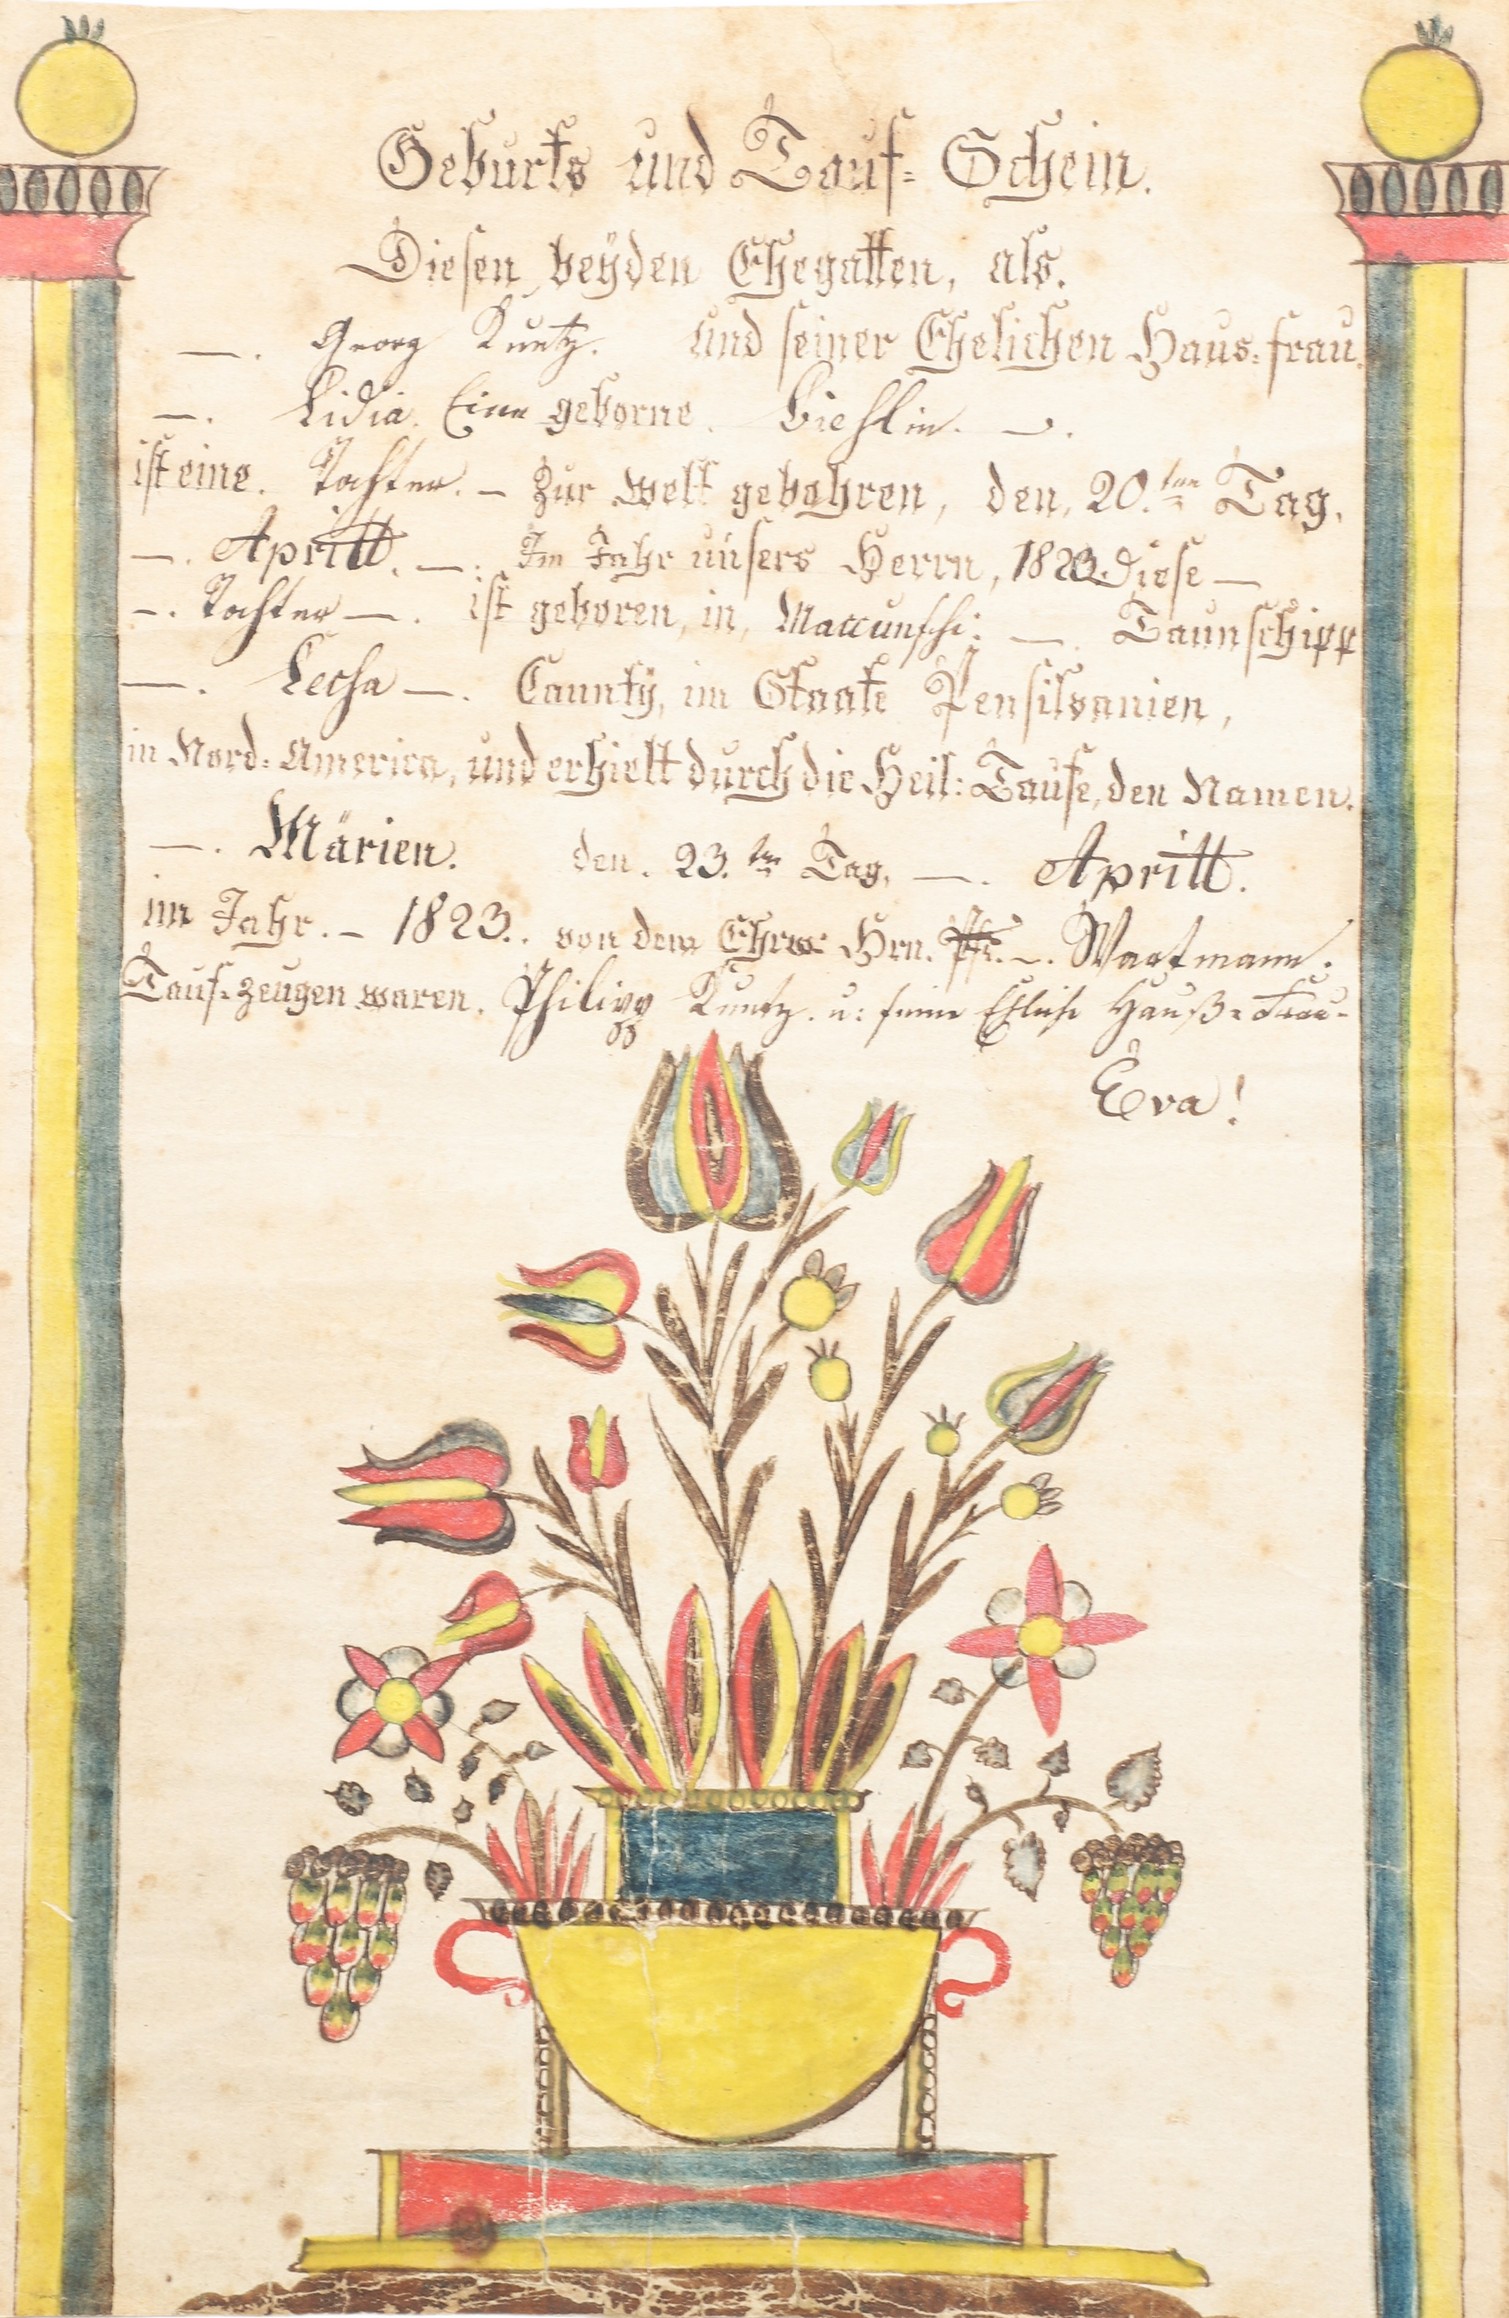 Geburts und Tauf= Schein.
Diesen beÿden Ehegatten, als.
—. Georg Kuntz. und seiner Ehelichen Haus=frau.
—. Lidia. Eine geborne. Biehlin. —.
ist eine. Tochter. – Zur welt gebohren, den, 20.ten Tag,
—. Aprill. —. Im Jahr unsers Herrn, 1823. Diese —
—. Tochter —. ist geboren, in, Maccunschi: —. Taunschipp
—. Lecha —. Cauntÿ, im Staate Pensilvanien,
in Nord=America, und erhielt durch die Heil: Taufe, den Namen.
—. Märien. den. 23.ten Tag, —. Aprill.
im Jahr. – 1823.. von dem Ehrw: Hrn. Pfr. —. Wartmann.
Tauf=zeugen waren. Philipp Kuntz. u: seine Ehliche Hauß=Frau-
Eva!